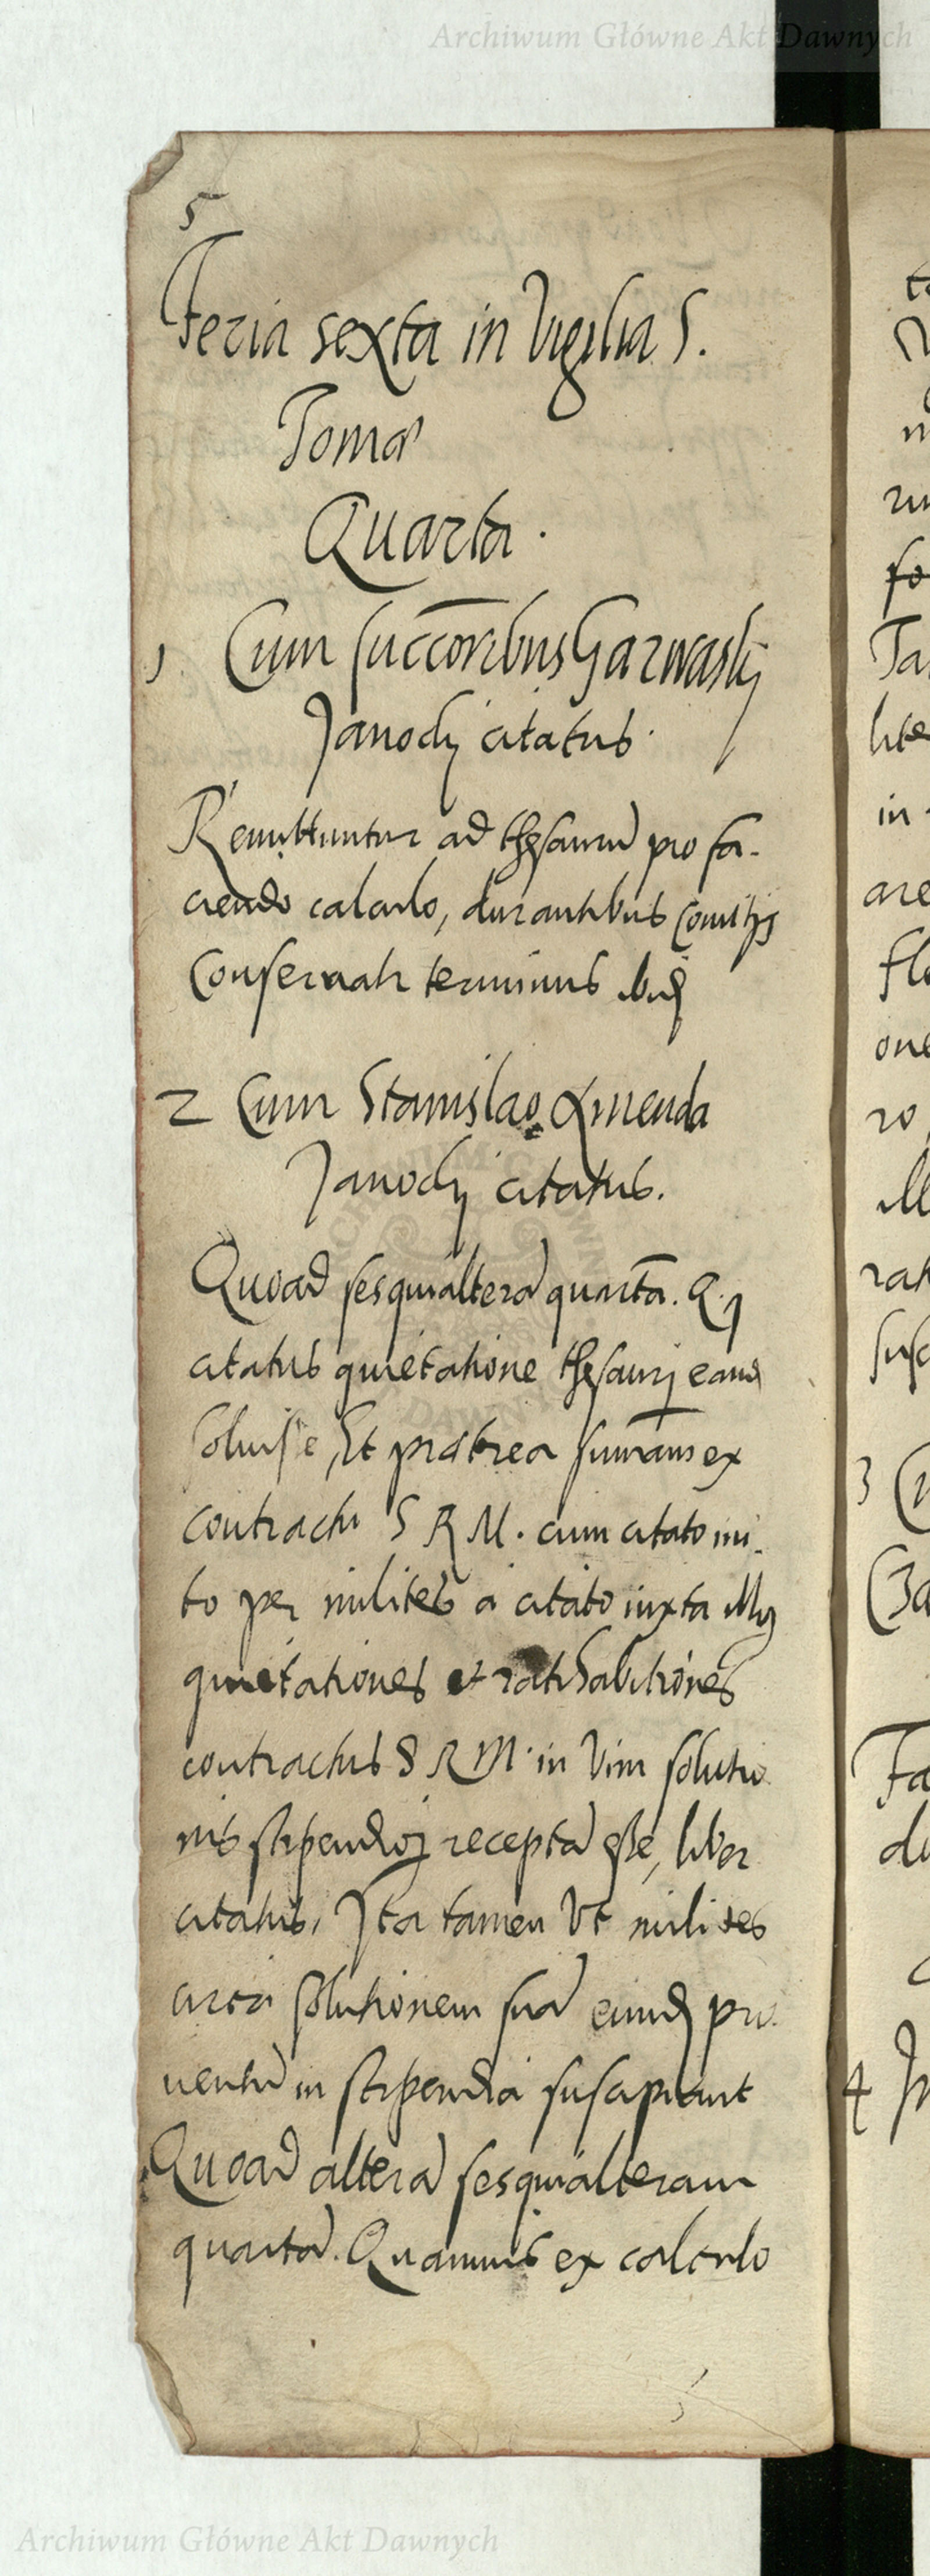 Archiwum Główne Akt Dawnych
5
Feria sexta in Vigilia S.
Tomæ
Quarta.
1 Cum succoribus Garwaskÿ
Janocÿ citatus.
Remittuntur ad thesaurũ pro fa-
ciendo calculo, durantibus comitÿs
Conservati terminus
2 Cum Stanislao Kmenda
Janocÿ citatus.
Quoad sesquialterã quartã. Q.
citatus quietatione thesaurj eand
solvisse, Et præterea sum̃am ex
contractu S R M. cum citato ini-
to per milites a citato iuxta illoꝝ
quietationes et ratihabitiones
contractus S R M. in Vim solutio
nis stipendioꝝ receptã esse, liber
citatus, Ita tamen Vt milites
circa solutionem suã eiusd pro-
ventũ in stipendia suscipiant
Quoad alterã sesquialteram
quartã. Quamvis ex calculo
ta
in
are
one
ro
3
4
Archiwum Główne Akt Dawnych